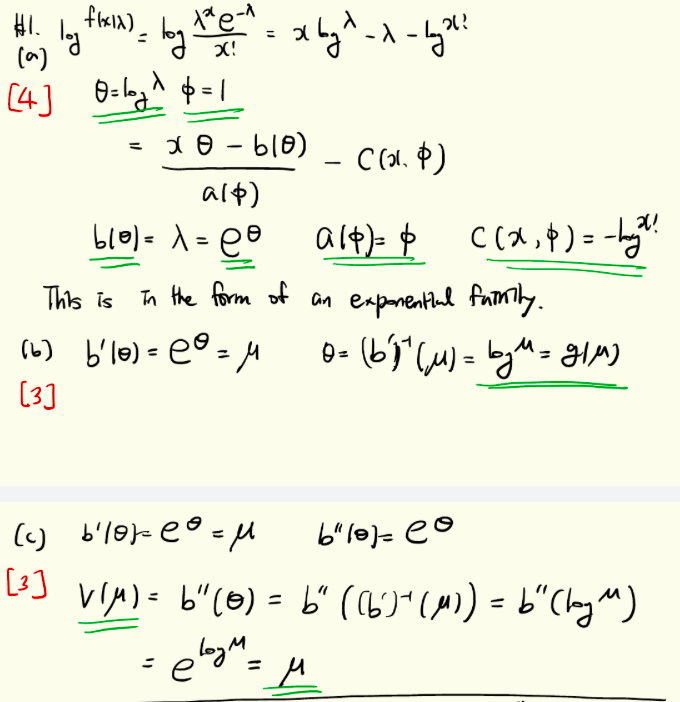 #1. log f(x|λ) = log λˣe^-λ / x! = x log λ - λ - log x!
(a)
[4] θ = log λ φ = 1
= x θ - b(θ) / a(φ) - C(x, φ)
b(θ) = λ = e^θ a(φ) = φ C(x, φ) = -log x!
This is in the form of an exponential family.
(b) b'(θ) = e^θ = μ θ = (b')⁻¹(μ) = log μ = g(μ)
[3]
(c) b'(θ) = e^θ = μ b''(θ) = e^θ
[3] V(μ) = b''(θ) = b''((b')⁻¹(μ)) = b''(log μ)
= e^log μ = μ